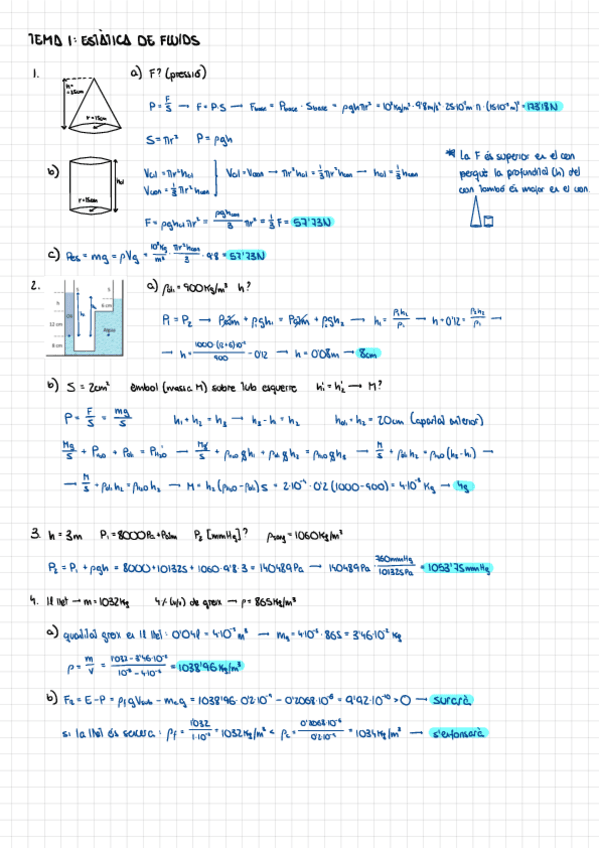 TEMA 1: ESTÀTICA DE FLUIDS
1.
a) F? (pressió)
h= 25cm
r=15cm
P = F/S → F = P·S → Fbase = Pbase · Sbase = ρghπr² = 10³Kg/m³ · 9'8m/s² · 25·10⁻²m · π · (15·10⁻²m)² = 173'18N
S = πr² P = ρgh
b)
hcil
r=15cm
Vcil = πr²hcil
Vcon = 1/3 πr²hcon
Vcil = Vcon → πr²hcil = 1/3 πr²hcon → hcil = 1/3 hcon
F = ρghcilπr² = ρghcon/3 πr² = 1/3 F = 57'73N
* La F és superior en el con
perquè la profunditat (h) del
con també és major en el con.
c) Pes = mg = ρVg = 10³Kg/m³ · πr²hcon/3 · 9'8 = 57'73N
2.
S
S
6 cm
h
12 cm
8 cm
Oli
Aigua
a) ρoli = 900Kg/m³ h?
P₁ = P₂ → Patm + ρ₁gh₁ = Patm + ρ₂gh₂ → h₁ = ρ₂h₂/ρ₁ → h+0'12 = ρ₂h₂/ρ₁ →
→ h = 1000·(12+6)·10⁻²/900 - 0'12 → h = 0'08m → 8cm
b) S = 2cm² èmbol (massa M) sobre tub esquerre h₁' = h₂' → M?
P = F/S = mg/S
h₁ + h₂ = h₃ → h₃ - h₁ = h₂
holi = h₂ = 20cm (apartat anterior)
Mg/S + PH₂O + Poli = PH₂O' → Mg/S + ρH₂O gh₁ + ρoli gh₂ = ρH₂O gh₃ → M/S + ρoli h₂ = ρH₂O (h₃-h₁) →
→ M/S + ρoli h₂ = ρH₂O h₂ → M = h₂(ρH₂O - ρoli)S = 2·10⁻⁴ · 0'2 (1000-900) = 4·10⁻³ Kg → 4g
3. h = 3m P₁ = 8000Pa+Patm P₂ [mmHg]? ρsang = 1060Kg/m³
P₂ = P₁ + ρgh = 8000+101325 + 1060·9'8·3 = 140489Pa → 140489Pa · 760mmHg/101325Pa = 1053'75mmHg
4. 1l llet → m = 1032Kg 4% (v/v) de greix → ρ = 865Kg/m³
a) quantitat greix en 1l llet: 0'04l = 4·10⁻⁵ m³ → mg = 4·10⁻⁵ · 865 = 3'46·10⁻² Kg
ρ = m/V = 1'032 - 3'46·10⁻²/10⁻³ - 4·10⁻⁵ = 1038'96 Kg/m³
b) FR = E-P = ρf gVsub - mcg = 1038'96 · 0'2·10⁻⁶ - 0'2068·10⁻³ = 9'92·10⁻⁷⁰ > 0 → surarà
si la llet és sencera: ρf = 1'032/1·10⁻³ = 1032Kg/m³ < ρc = 0'2068·10⁻³/0'2·10⁻⁶ = 1034Kg/m³ → s'enfonsarà